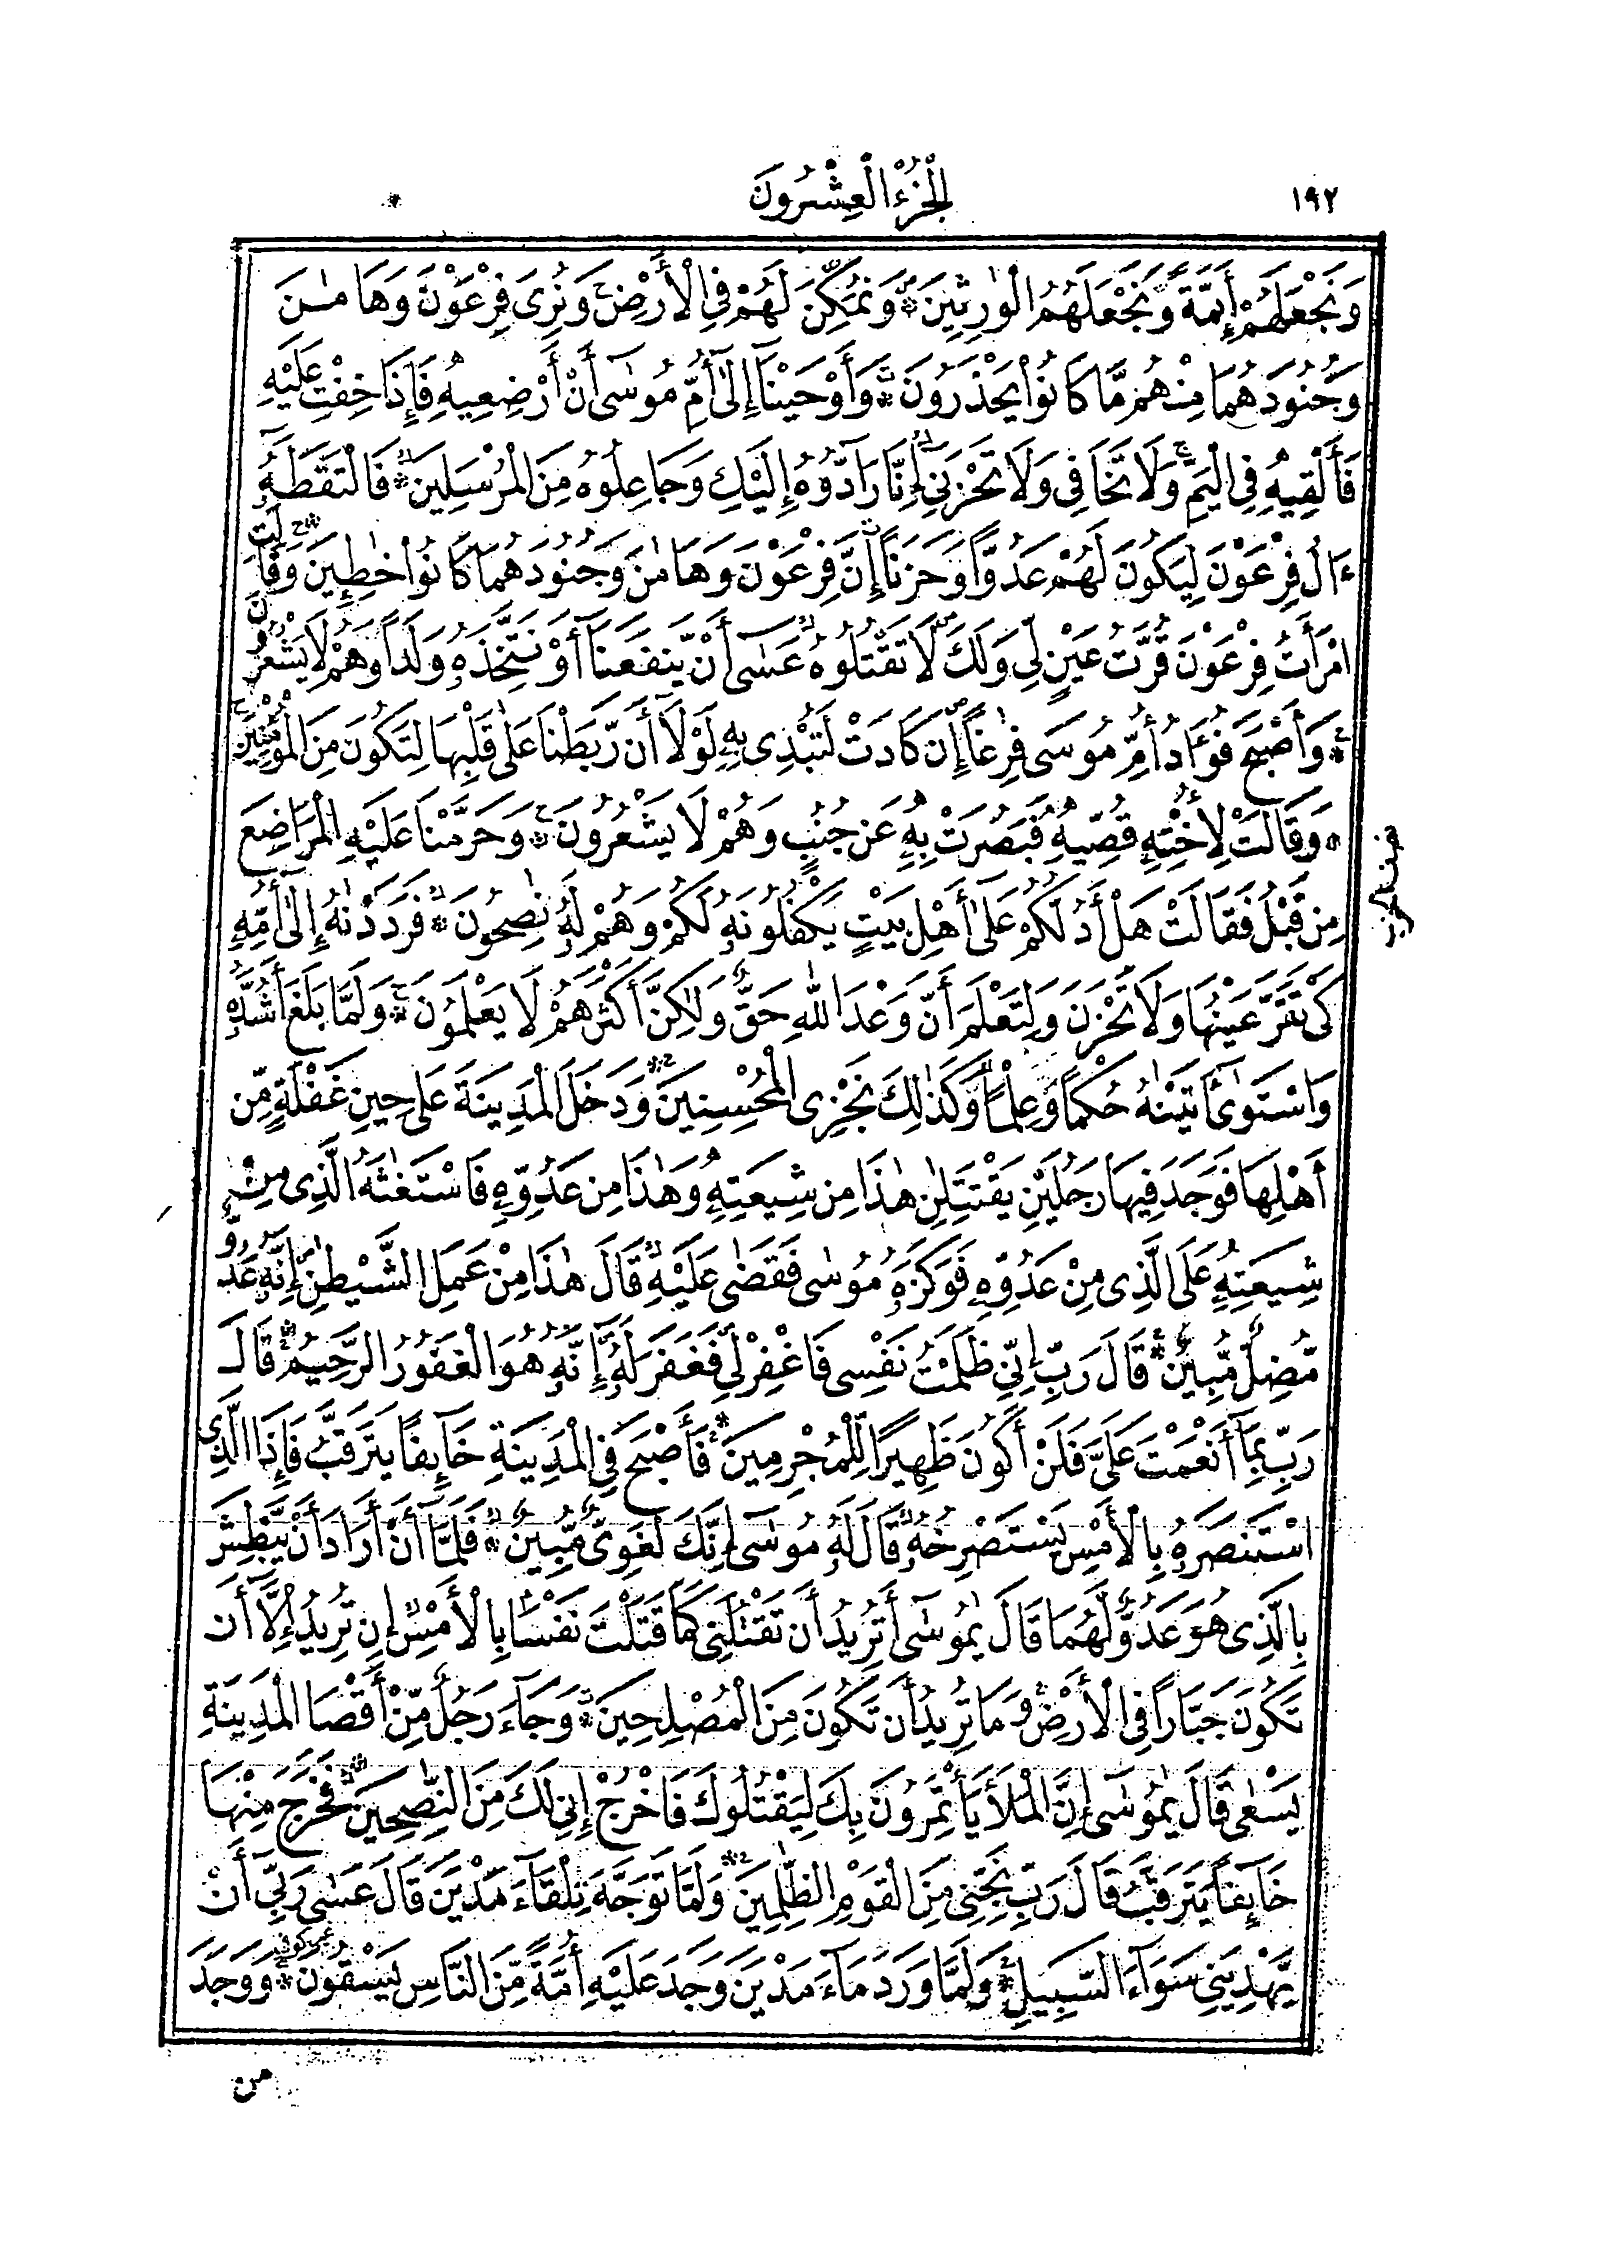 ١٩٢
الْجُزْءُ الْعِشْرُونَ
وَنَجْعَلَهُمْ أَئِمَّةً وَنَجْعَلَهُمُ الْوٰرِثِينَ وَنُمَكِّنَ لَهُمْ فِي الْأَرْضِ وَنُرِيَ فِرْعَوْنَ وَهَامٰنَ
وَجُنُودَهُمَا مِنْهُم مَّا كَانُوا يَحْذَرُونَ وَأَوْحَيْنَآ إِلٰىٓ أُمِّ مُوسٰىٓ أَنْ أَرْضِعِيهِ فَإِذَا خِفْتِ عَلَيْهِ
فَأَلْقِيهِ فِي الْيَمِّ وَلَا تَخَافِي وَلَا تَحْزَنِيٓ إِنَّا رَآدُّوهُ إِلَيْكِ وَجَاعِلُوهُ مِنَ الْمُرْسَلِينَ فَالْتَقَطَهُٓ
ءَالُ فِرْعَوْنَ لِيَكُونَ لَهُمْ عَدُوًّا وَحَزَنًا إِنَّ فِرْعَوْنَ وَهَامٰنَ وَجُنُودَهُمَا كَانُوا خٰطِـِٔينَ وَقَالَتِ
امْرَأَتُ فِرْعَوْنَ قُرَّتُ عَيْنٍ لِّي وَلَكَ لَا تَقْتُلُوهُ عَسٰىٓ أَن يَنفَعَنَآ أَوْ نَتَّخِذَهُ وَلَدًا وَهُمْ لَا يَشْعُرُونَ
وَأَصْبَحَ فُؤَادُ أُمِّ مُوسٰى فٰرِغًا إِن كَادَتْ لَتُبْدِي بِهِ لَوْلَآ أَن رَّبَطْنَا عَلٰى قَلْبِهَا لِتَكُونَ مِنَ الْمُؤْمِنِينَ
وَقَالَتْ لِأُخْتِهِ قُصِّيهِ فَبَصُرَتْ بِهِ عَن جُنُبٍ وَهُمْ لَا يَشْعُرُونَ وَحَرَّمْنَا عَلَيْهِ الْمَرَاضِعَ
مِن قَبْلُ فَقَالَتْ هَلْ أَدُلُّكُمْ عَلٰىٓ أَهْلِ بَيْتٍ يَكْفُلُونَهُ لَكُمْ وَهُمْ لَهُ نٰصِحُونَ فَرَدَدْنٰهُ إِلٰىٓ أُمِّهِ
كَيْ تَقَرَّ عَيْنُهَا وَلَا تَحْزَنَ وَلِتَعْلَمَ أَنَّ وَعْدَ اللّٰهِ حَقٌّ وَلٰكِنَّ أَكْثَرَهُمْ لَا يَعْلَمُونَ وَلَمَّا بَلَغَ أَشُدَّهُ
وَاسْتَوٰىٓ ءَاتَيْنٰهُ حُكْمًا وَعِلْمًا وَكَذٰلِكَ نَجْزِي الْمُحْسِنِينَ وَدَخَلَ الْمَدِينَةَ عَلٰى حِينِ غَفْلَةٍ مِّنْ
أَهْلِهَا فَوَجَدَ فِيهَا رَجُلَيْنِ يَقْتَتِلٰنِ هٰذَا مِن شِيعَتِهِ وَهٰذَا مِنْ عَدُوِّهِ فَاسْتَغٰثَهُ الَّذِي مِن
شِيعَتِهِ عَلَى الَّذِي مِنْ عَدُوِّهِ فَوَكَزَهُ مُوسٰى فَقَضٰى عَلَيْهِ قَالَ هٰذَا مِنْ عَمَلِ الشَّيْطٰنِ إِنَّهُ عَدُوٌّ
مُّضِلٌّ مُّبِينٌ قَالَ رَبِّ إِنِّي ظَلَمْتُ نَفْسِي فَاغْفِرْ لِي فَغَفَرَ لَهُ إِنَّهُ هُوَ الْغَفُورُ الرَّحِيمُ قَالَ
رَبِّ بِمَآ أَنْعَمْتَ عَلَيَّ فَلَنْ أَكُونَ ظَهِيرًا لِّلْمُجْرِمِينَ فَأَصْبَحَ فِي الْمَدِينَةِ خَآئِفًا يَتَرَقَّبُ فَإِذَا الَّذِي
اسْتَنصَرَهُ بِالْأَمْسِ يَسْتَصْرِخُهُ قَالَ لَهُ مُوسٰىٓ إِنَّكَ لَغَوِيٌّ مُّبِينٌ فَلَمَّآ أَنْ أَرَادَ أَن يَبْطِشَ
بِالَّذِي هُوَ عَدُوٌّ لَّهُمَا قَالَ يٰمُوسٰىٓ أَتُرِيدُ أَن تَقْتُلَنِي كَمَا قَتَلْتَ نَفْسًا بِالْأَمْسِ إِن تُرِيدُ إِلَّآ أَن
تَكُونَ جَبَّارًا فِي الْأَرْضِ وَمَا تُرِيدُ أَن تَكُونَ مِنَ الْمُصْلِحِينَ وَجَآءَ رَجُلٌ مِّنْ أَقْصَا الْمَدِينَةِ
يَسْعٰى قَالَ يٰمُوسٰىٓ إِنَّ الْمَلَأَ يَأْتَمِرُونَ بِكَ لِيَقْتُلُوكَ فَاخْرُجْ إِنِّي لَكَ مِنَ النّٰصِحِينَ فَخَرَجَ مِنْهَا
خَآئِفًا يَتَرَقَّبُ قَالَ رَبِّ نَجِّنِي مِنَ الْقَوْمِ الظّٰلِمِينَ وَلَمَّا تَوَجَّهَ تِلْقَآءَ مَدْيَنَ قَالَ عَسٰى رَبِّيٓ أَنْ
يَهْدِيَنِي سَوَآءَ السَّبِيلِ وَلَمَّا وَرَدَ مَآءَ مَدْيَنَ وَجَدَ عَلَيْهِ أُمَّةً مِّنَ النَّاسِ يَسْقُونَ وَوَجَدَ
من